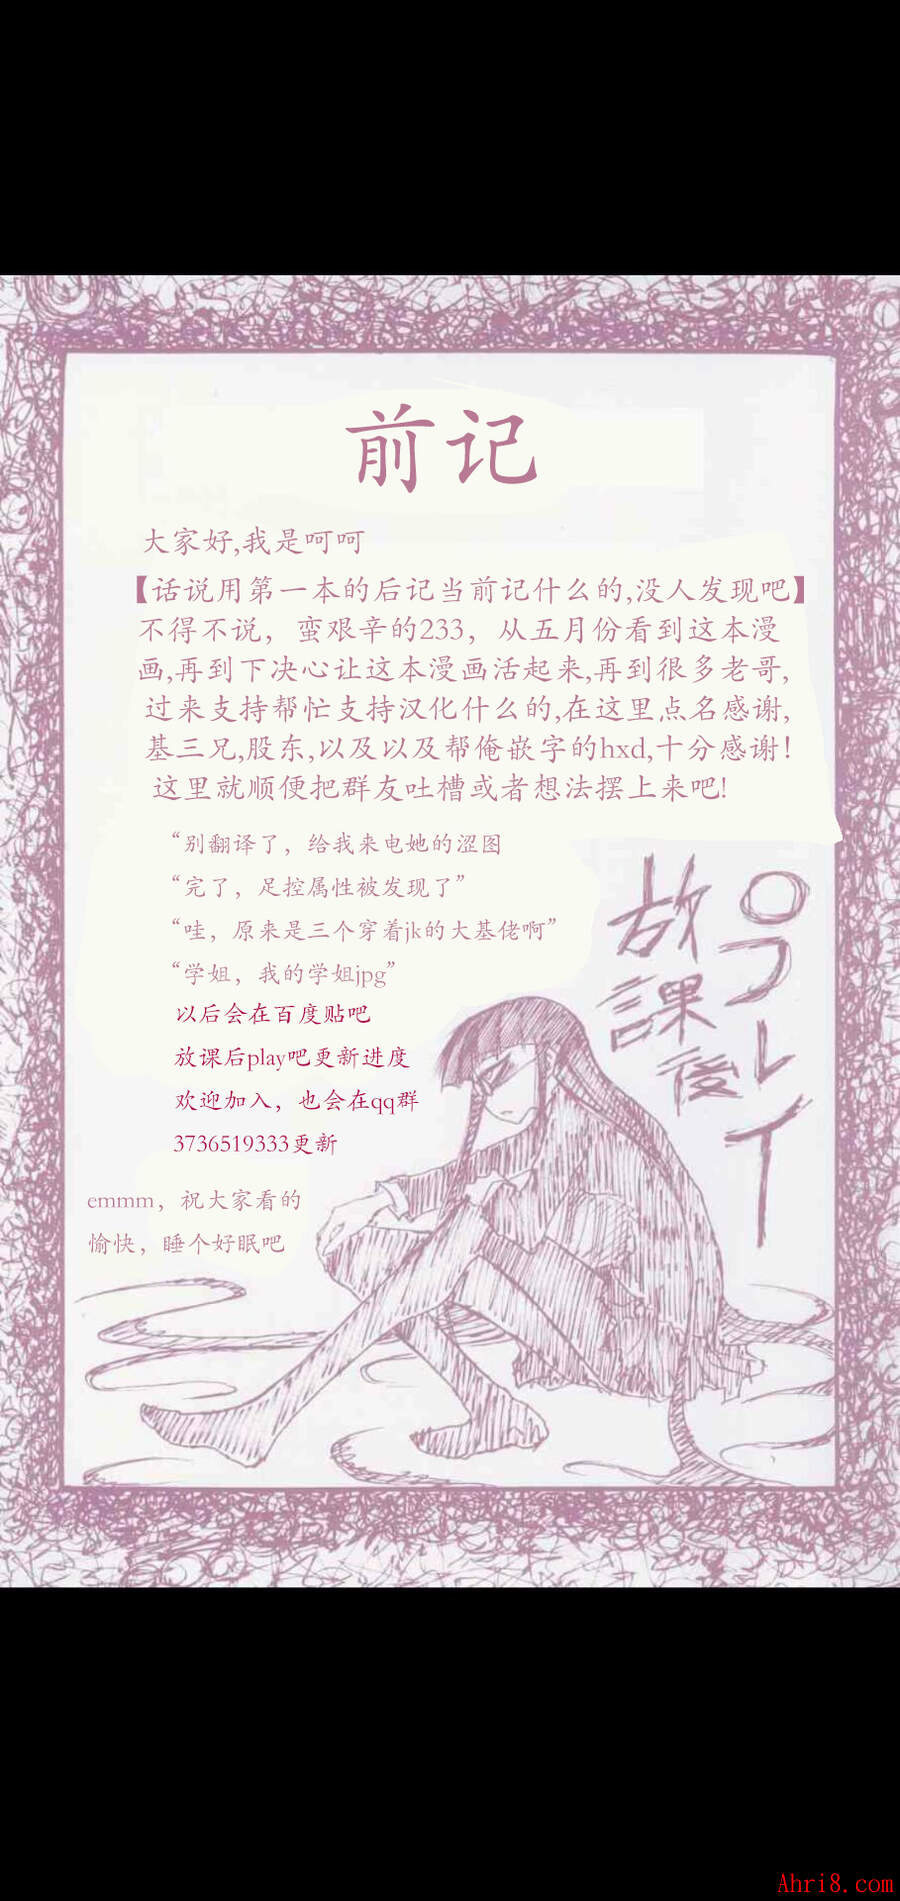 前记
大家好,我是呵呵
【话说用第一本的后记当前记什么的,没人发现吧】
不得不说，蛮艰辛的233，从五月份看到这本漫
画,再到下决心让这本漫画活起来,再到很多老哥,
过来支持帮忙支持汉化什么的,在这里点名感谢,
基三兄,股东,以及以及帮俺嵌字的hxd,十分感谢!
这里就顺便把群友吐槽或者想法摆上来吧!
“别翻译了，给我来电她的涩图
“完了，足控属性被发现了”
“哇，原来是三个穿着jk的大基佬啊”
“学姐，我的学姐jpg”
以后会在百度贴吧
放课后play吧更新进度
欢迎加入，也会在qq群
3736519333更新
emmm，祝大家看的
愉快，睡个好眠吧
放課後
プレイ
Ahri8.com